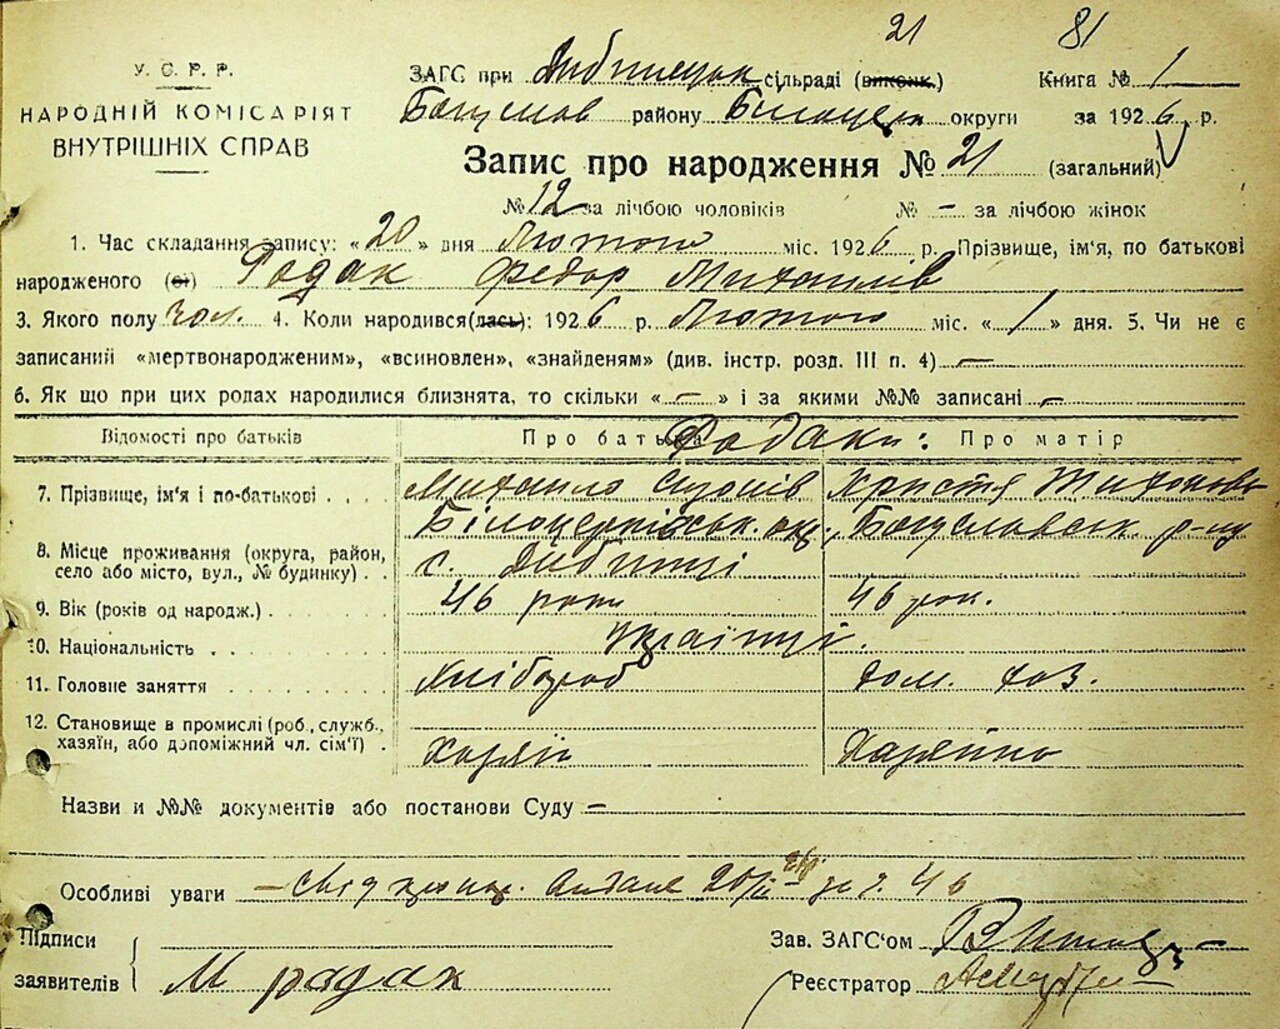 21 81
У. С. Р. Р.
НАРОДНІЙ КОМІСАРІЯТ
ВНУТРІШНІХ СПРАВ
ЗАГС при Дибинецьк сільраді (виконк.) Книга № 1
Богуслав району Білоцерк округи за 1926 р.
Запис про народження № 21 (загальний)
№ 12 за лічбою чоловіків № – за лічбою жінок
1. Час складання запису: «20» дня Лютого міс. 1926 р. Прізвище, ім'я, по батькові
народженого (ої) Родак Федор Михайлів
3. Якого полу чол. 4. Коли народився(лась): 1926 р. Лютого міс. «1» дня. 5. Чи не є
записаний «мертвонародженим», «всиновлен», «знайденям» (див. інстр. розд. III п. 4) –
6. Як що при цих родах народилися близнята, то скільки « – » і за якими №№ записані –
Відомості про батьків Про батька Родаки: Про матір
7. Прізвище, ім'я і по-батькові Михайло Христя Тихонова
Білоцерківськ. окр., Богуславськ р-ну
8. Місце проживання (округа, район,
село або місто, вул., № будинку) с. Дибинці
9. Вік (років од народж.) 46 роки 46 рок.
10. Національність Українці.
11. Головне заняття Хлібороб дом. хоз.
12. Становище в промислі (роб., служб.,
хазяїн, або допоміжний чл. сім'ї) Хазяїн Хазяйка
Назви и №№ документів або постанови Суду –
Особливі уваги – видане 20/II за № 46
Підписи
заявителів М родак
Зав. ЗАГС'ом
Реєстратор